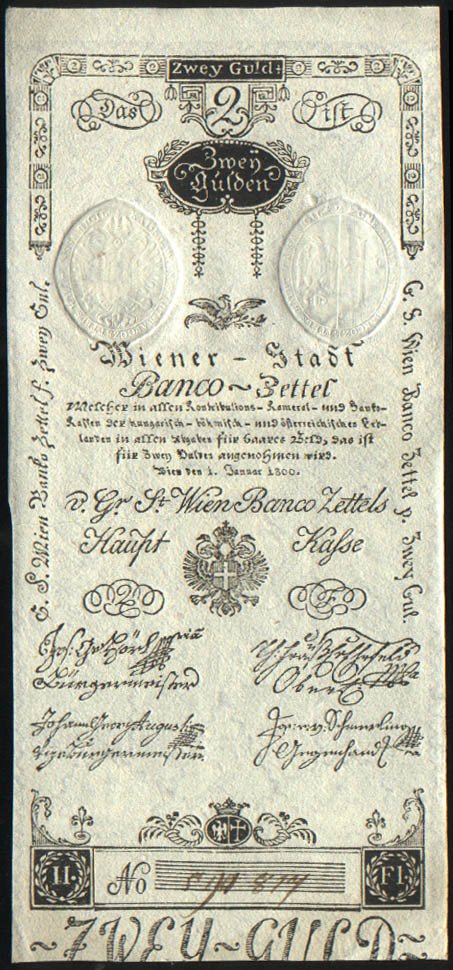 Zwey Guld:
Das 2 ist
Zwey
Gulden
Wiener - Stadt
Banco ~ Zettel
Welcher in allen Kontributions - Kameral - und Banko-
Kassen der hungarisch - böhmisch - und österreichischen Erb-
landen in allen Abgaben für baares Geld, das ist
für Zwey Gulden angenohmen wird.
Wien den 1. Januar 1800.
v. Gr St Wien Banco Zettels
Haupt Kasse
G. S. Wien Banko Zettel p. Zwey Gul.
G. S. Wien Banco Zettel p. Zwey Gul.
Bürgermeister
Johann Georg Augusti
Vizebürgermeister
Gegenhand
II. No FI.
~ZWEY-GULD~